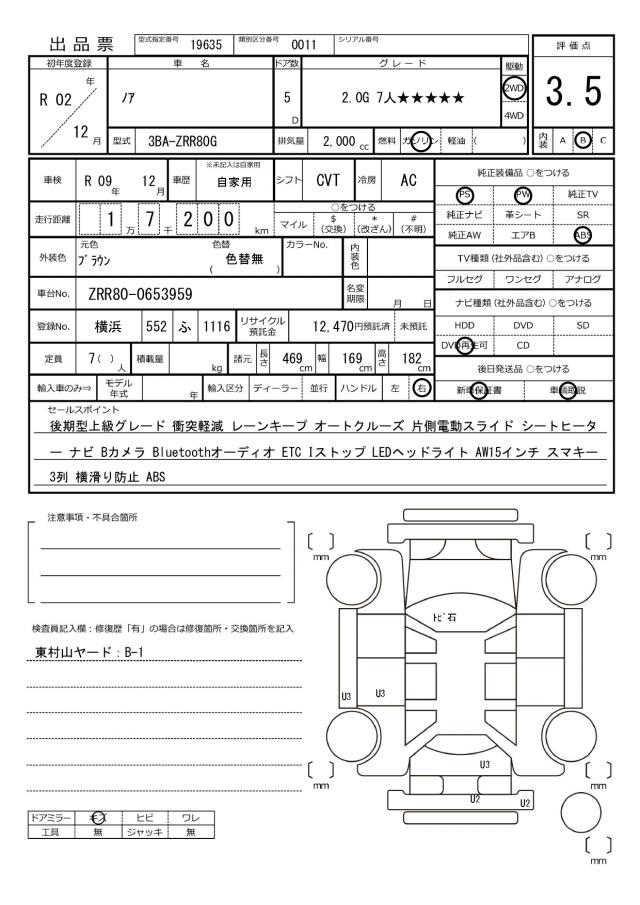 出品票 型式指定番号 19635 類別区分番号 0011 シリアル番号
評価点
3.5
内装 A B C
初年度登録 車名 ドア数 グレード 駆動
R 02 年 12 月 ノア 5 D 2.0G 7人★★★★★ 2WD 4WD
型式 3BA-ZRR80G 排気量 2,000 cc 燃料 ガソリン 軽油 ( )
車検 R 09 年 12 月 車歴 ※未記入は自家用 自家用 シフト CVT 冷房 AC
走行距離 1 万 7 千 2 0 0 km ○をつける
マイル $ (交換) * (改ざん) # (不明)
外装色 元色 ブラウン 色替 ( 色替無 ) カラーNo. 内装色
車台No. ZRR80-0653959 名変期限 月 日
登録No. 横浜 552 ふ 1116 リサイクル預託金 12,470円預託済 未預託
定員 7( ) 人 積載量 kg 諸元 長さ 469 cm 幅 169 cm 高さ 182 cm
輸入車のみ⇒ モデル年式 年 輸入区分 ディーラー 並行 ハンドル 左 右
純正装備品 ○をつける
PS PW 純正TV
純正ナビ 革シート SR
純正AW エアB ABS
TV種類(社外品含む) ○をつける
フルセグ ワンセグ アナログ
ナビ種類(社外品含む) ○をつける
HDD DVD SD
DVD再生可 CD
後日発送品 ○をつける
新車保証書 車輌取説
セールスポイント
後期型上級グレード 衝突軽減 レーンキープ オートクルーズ 片側電動スライド シートヒータ
ー ナビ Bカメラ Bluetoothオーディオ ETC Iストップ LEDヘッドライト AW15インチ スマキー
3列 横滑り防止 ABS
注意事項・不具合箇所
検査員記入欄：修復歴「有」の場合は修復箇所・交換箇所を記入
東村山ヤード：B-1
ドアミラー キズ ヒビ ワレ
工具 無 ジャッキ 無
mm
mm
トビ石
U3
U3
U3
mm
mm
U2
U2
mm